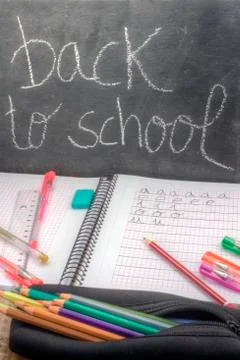 back
to school
a a a a a a
e e e e e e
o o o
u u